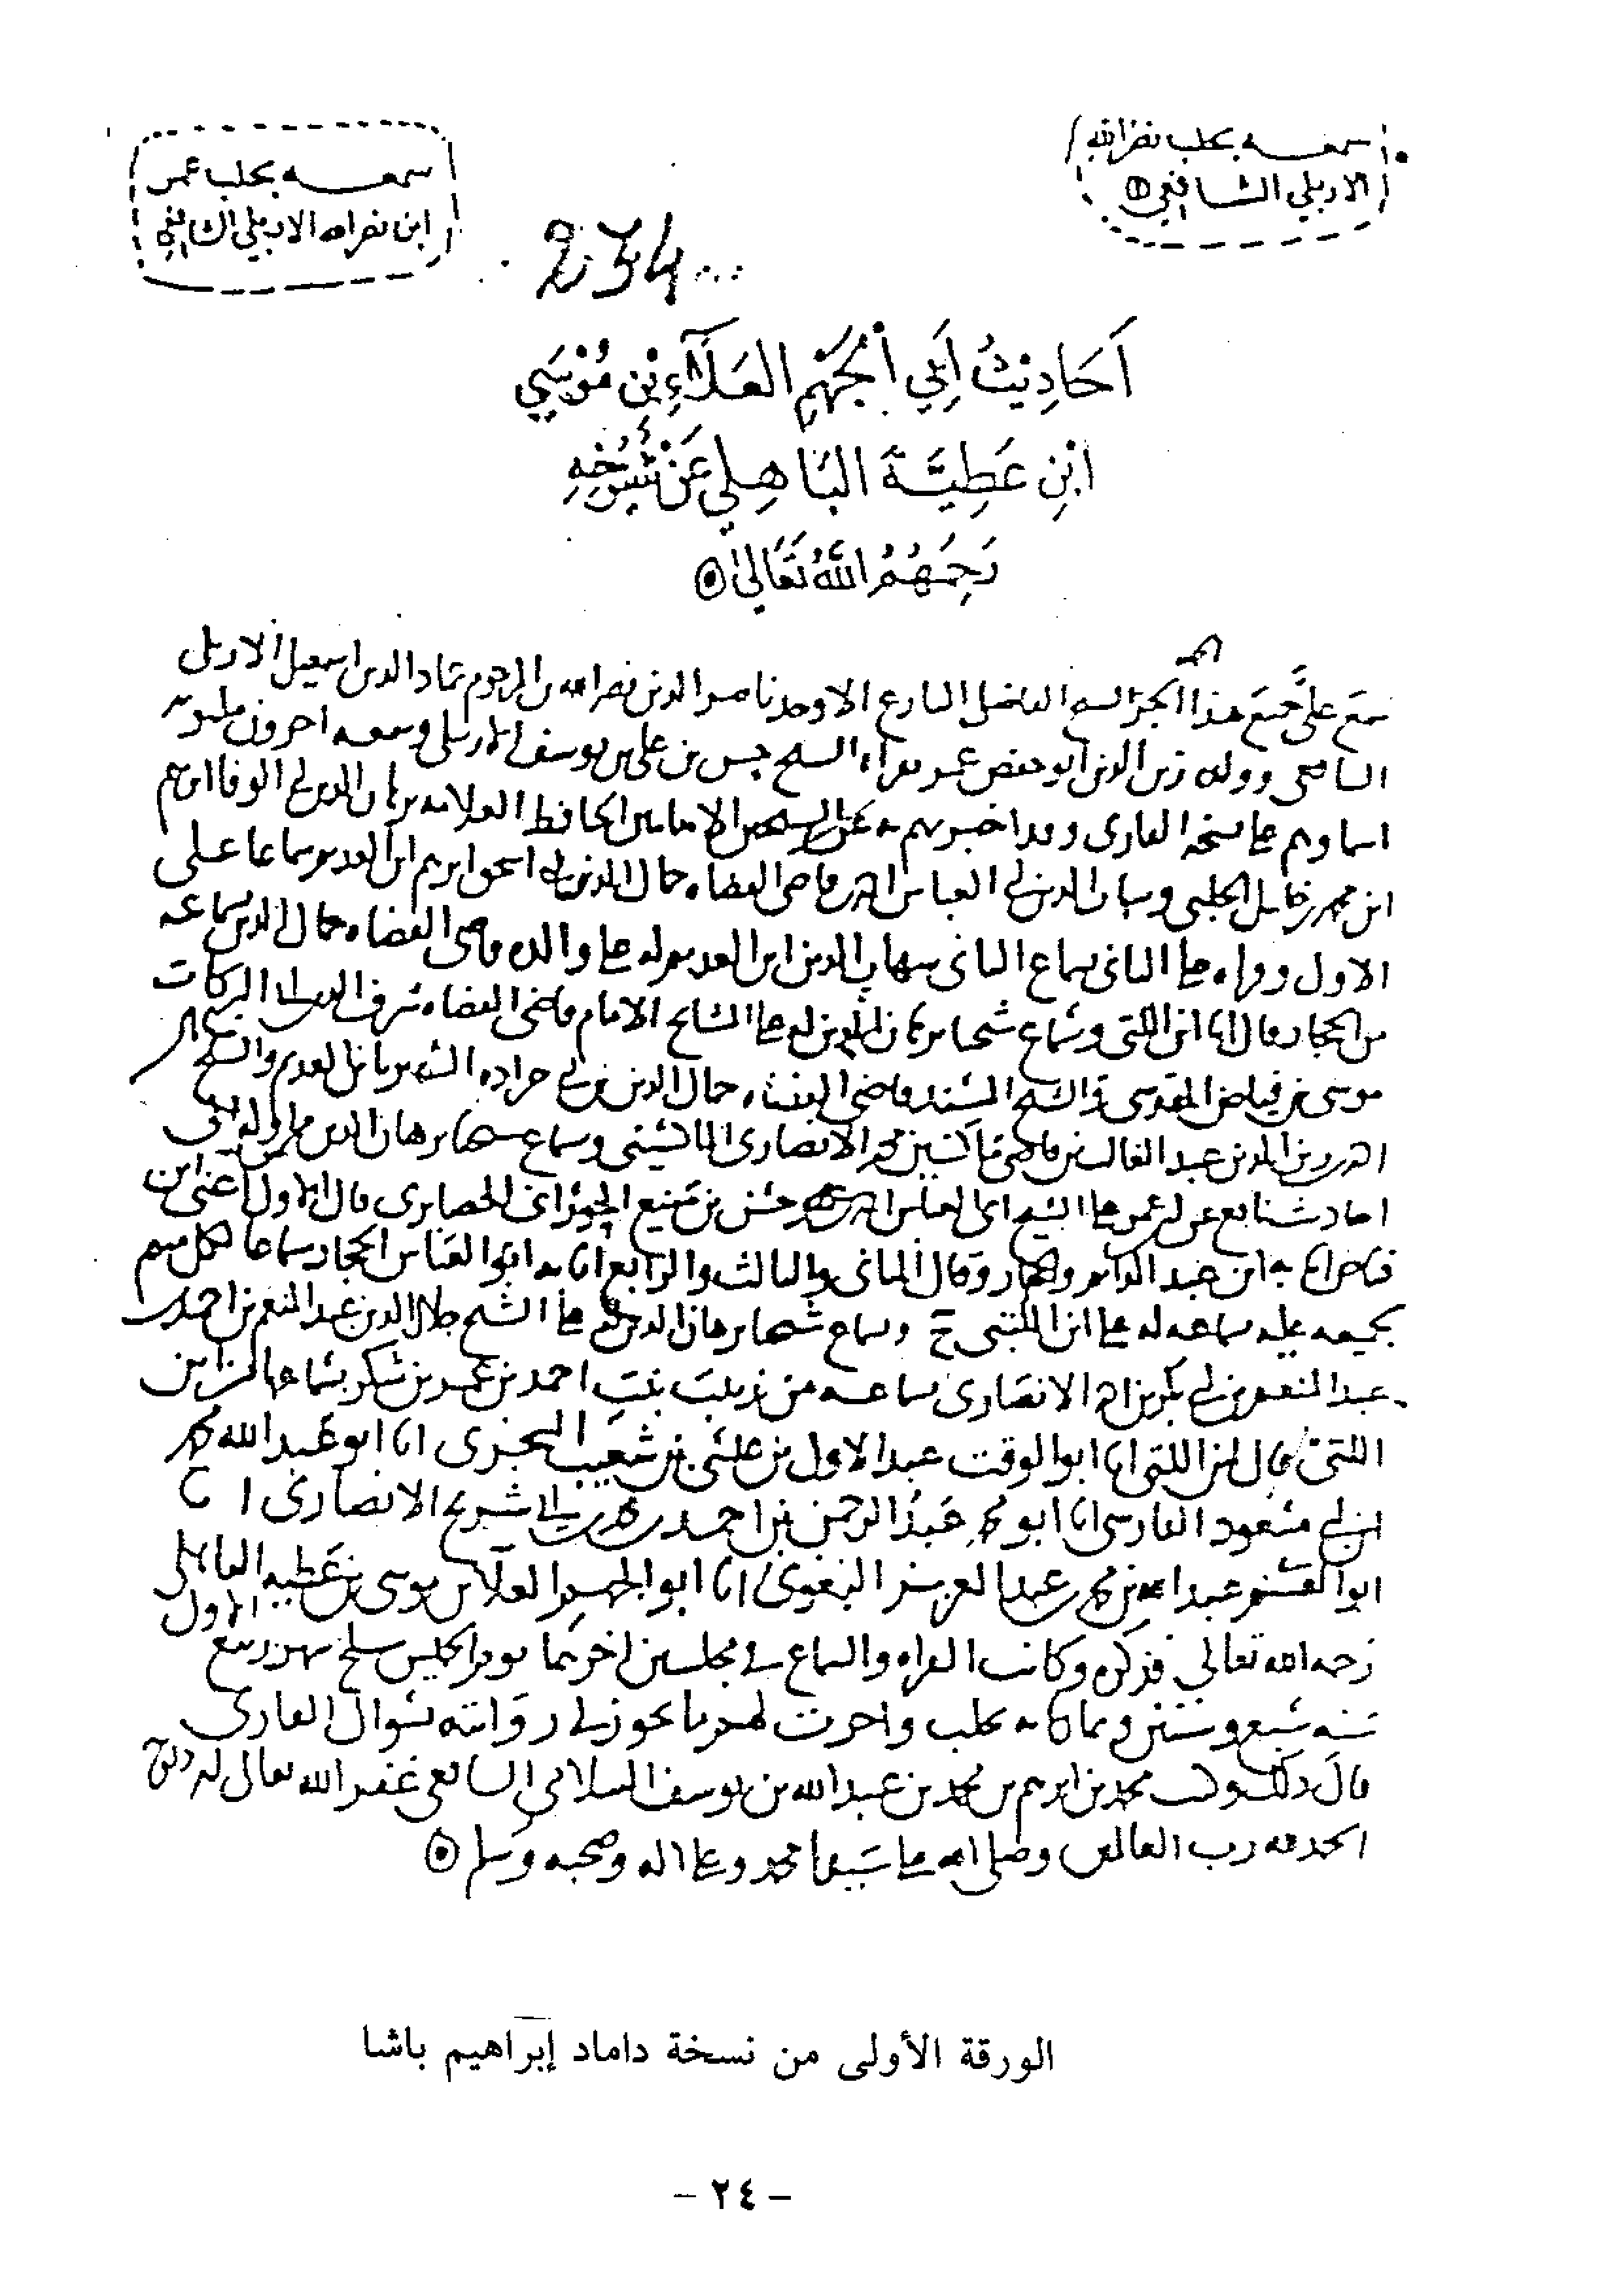 سمعه بحلب نصر الله
الاربلي الشافعي
سمعه بحلب عمر
ابن نصر الله الاربلي الشافعي
234
اَحَادِيثُ اَبِي الجَهْمِ العَلَآءِ بْنِ مُوْسَي
ابْنِ عَطِيَّةَ البَاهِلي عَنْ شُيُوخِهِ
رَحِمَهُمُ اللهُ تَعَالىٰ
سمع علي جميع هذا الجزء الشيخ الفاضل البارع الاوحد ناصر الدين نصر الله بن المرحوم عماد الدين اسمعيل الاربلي
الشافعي وولده زين الدين ابو حفص عمر بقراءة الشيخ حسن بن علي بن يوسف الاربلي وسمعه اخرون
اسماوهم على نسخة القاري وقد اخبرتهم به عن الشيخين الامامين الحافظ العلامه برهان الدين ابي الوفا ابرهيم
ابن محمد بن خليل الحلبي وشهاب الدين ابي العباس احمد بن قاضي القضاه جمال الدين ابي اسحق ابرهيم ابن العديم سماعا على
الاول وقراه على الثاني بسماع الثاني شهاب الدين ابن العديم له على والده قاضي القضاه جمال الدين بسماعه
من الحجار قال انا ابن اللتي وسماع شيخنا برهان الدين له على المشايخ الامام قاضي القضاه شرف الدين ابي البركات
موسى بن فياض المقدسي والشيخ المسند قاضي القضاه جمال الدين بن ابي جراده الشهير بابن العديم والشيخ
عبد الغالب بن محمد الانصاري الماكسيني وسماع شيخنا برهان الدين
احاديث نافع عن ابن عمر على الشيخ ابي العباس احمد حسن بن منيع الجوزاني الحصايري قال الاول اعني ابن
فياض ابن عبد الدايم وقال الثاني والثالث والرابع انا به ابو العباس الحجار سماعا لكل منهم
بجميعه عليه بسماعه له على ابن اللتي ح وسماع شيخنا برهان الدين على الشيخ جلال الدين عبد المنعم بن احمد بن
عبد المنعم بن ابي بكر بن احمد الانصاري بسماعه من زينب بنت احمد بن عمر بن شكر بسماعها من ابن
اللتي قال ابن اللتي انا ابو الوقت عبد الاول بن عيسى بن شعيب السجزي انا ابو عبد الله محمد
ابن ابي مسعود الفارسي انا ابو محمد عبد الرحمن بن احمد بن محمد بن ابي شريح الانصاري انا
ابو القسم عبد الله بن محمد بن عبد العزيز البغوي انا ابو الجهم العلا بن موسى بن عطيه الباهلي
رحمه الله تعالي فذكره وكانت القراه والسماع في مجلسين اخرهما يوم الخميس سلخ شهر ربيع الاول
سنه سبع وستين وثمانمايه بحلب واجزت لهم ما يجوز لي روايته بسوال القاري
قال ذلك وكتب محمد بن ابرهيم بن محمد بن عبد الله بن يوسف السلامي الشافعي غفر الله تعالى له
الحمد لله رب العالمين وصلى الله على سيدنا محمد وعلى اله وصحبه وسلم
الورقة الأولى من نسخة داماد إبراهيم باشا
- ٢٤ -